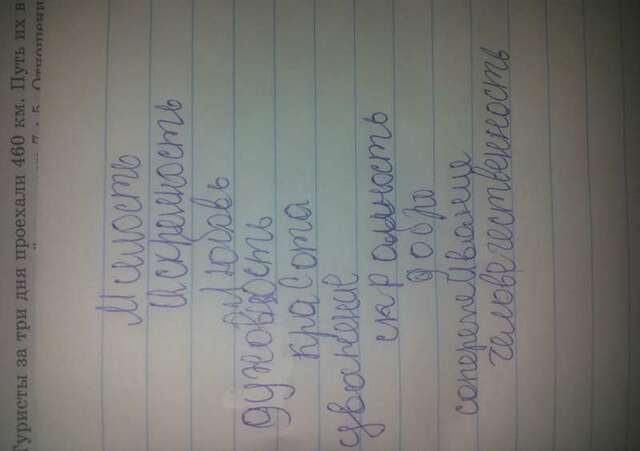 Туристы за три дня проехали 460 км. Путь их в
7 : 5. Отношени
Милость
Искренность
Любовь
духовность
красота
уважение
скромность
добро
сопереживание
человечественность